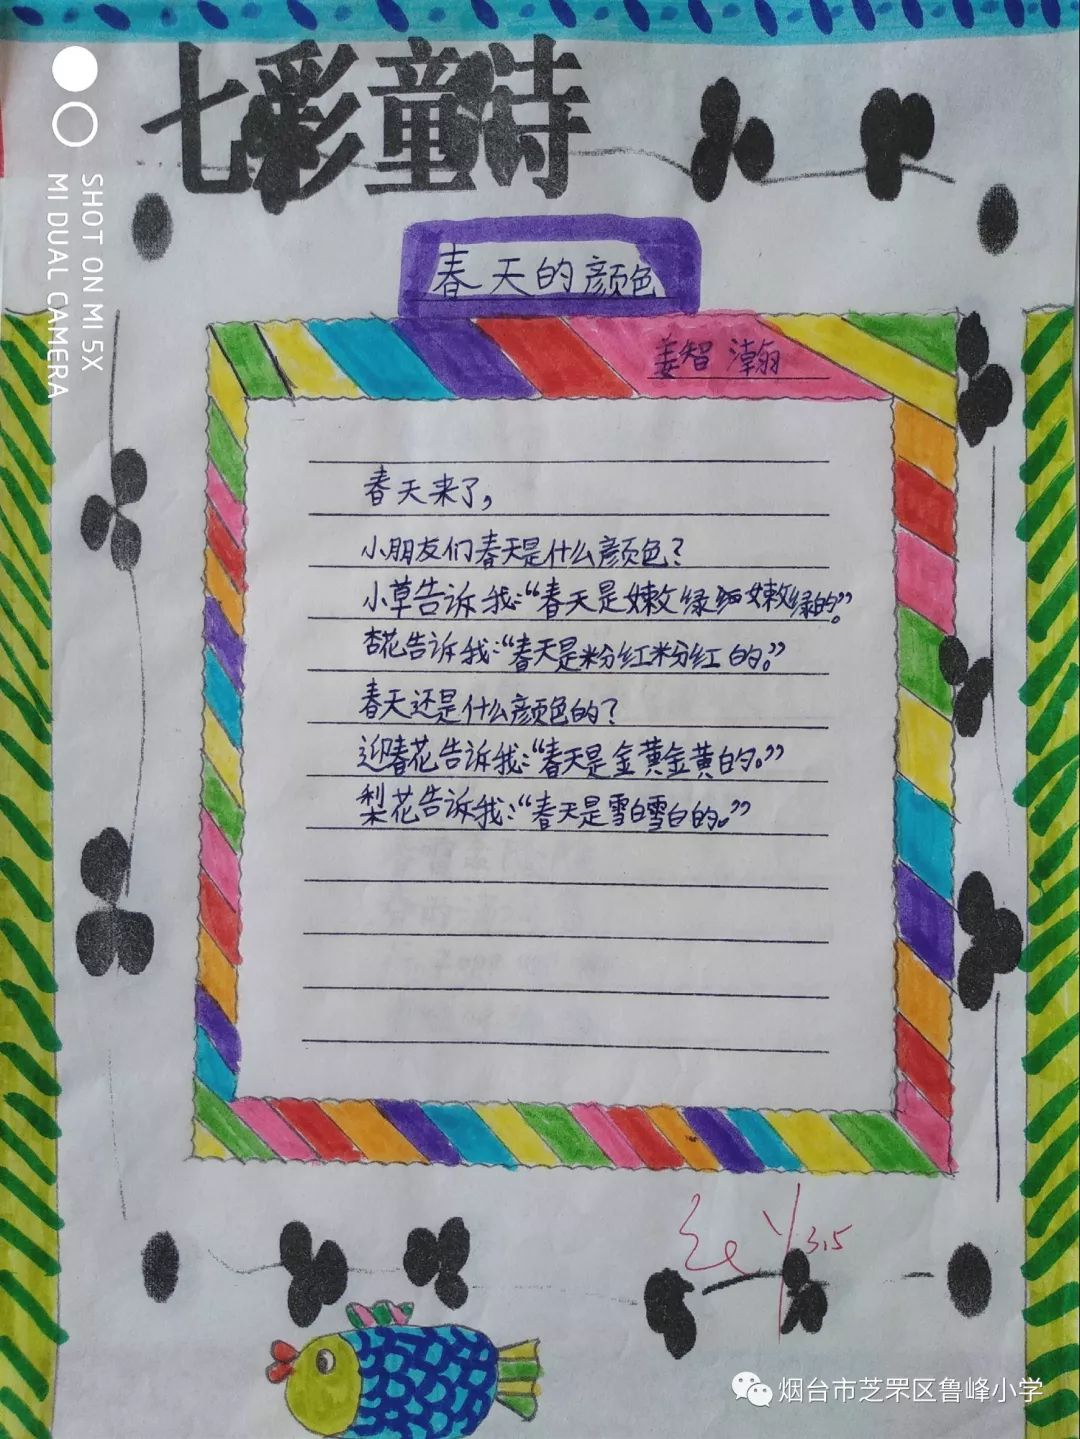 七彩童诗
SHOT ON MI 5X
MI DUAL CAMERA
春天的颜色
姜智瀚
春天来了，
小朋友们春天是什么颜色？
小草告诉我：“春天是嫩绿嫩绿的。”
杏花告诉我：“春天是粉红粉红的。”
春天还是什么颜色的？
迎春花告诉我：“春天是金黄金黄的。”
梨花告诉我：“春天是雪白雪白的。”
3.5
烟台市芝罘区鲁峰小学